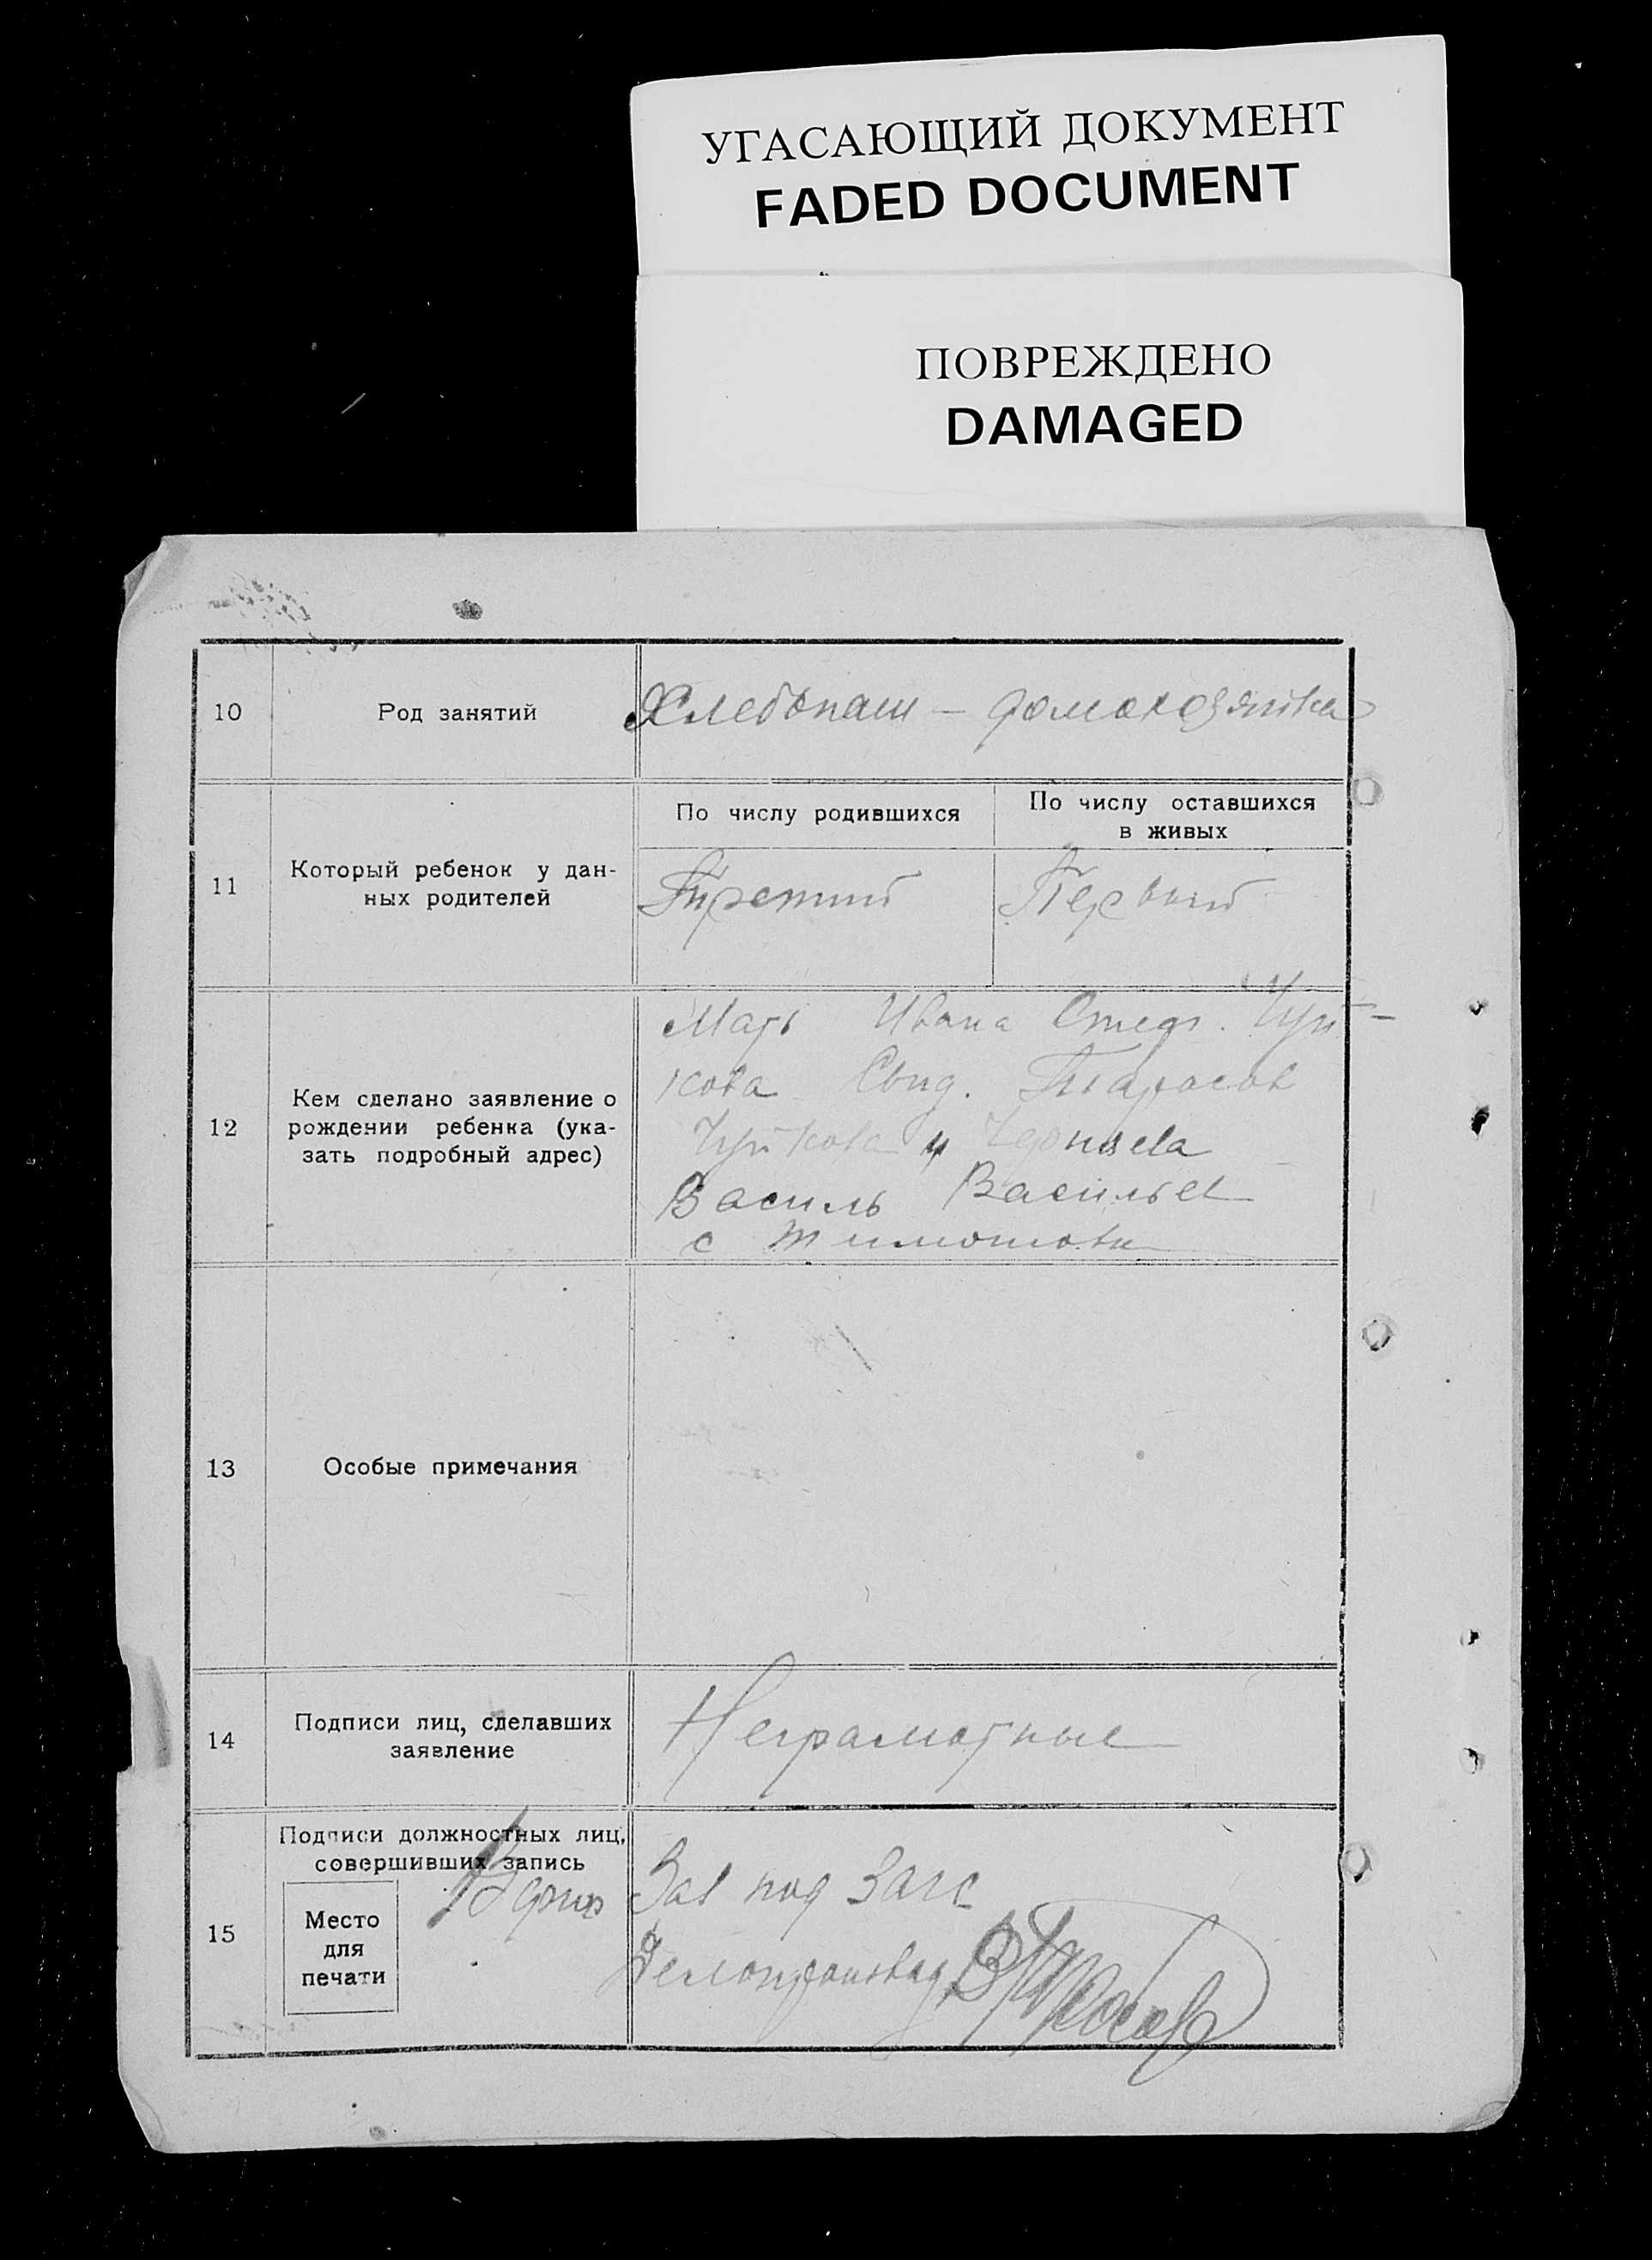 УГАСАЮЩИЙ ДОКУМЕНТ
FADED DOCUMENT
ПОВРЕЖДЕНО
DAMAGED
10 Род занятий Хлебопаш — домохозяйка
11 Который ребенок у дан-
ных родителей
По числу родившихся
Третий
По числу оставшихся
в живых
Первый
12 Кем сделано заявление о
рождении ребенка (ука-
зать подробный адрес)
Мать Ивана Чуй-
кова Свид. Тарасов
Чуйкова и
Василь Васильев
с
13 Особые примечания
14 Подписи лиц, сделавших
заявление
Неграмотные
15 Подписи должностных лиц,
совершивших запись
Место
для
печати
Зав под Загс
Делопроизвод